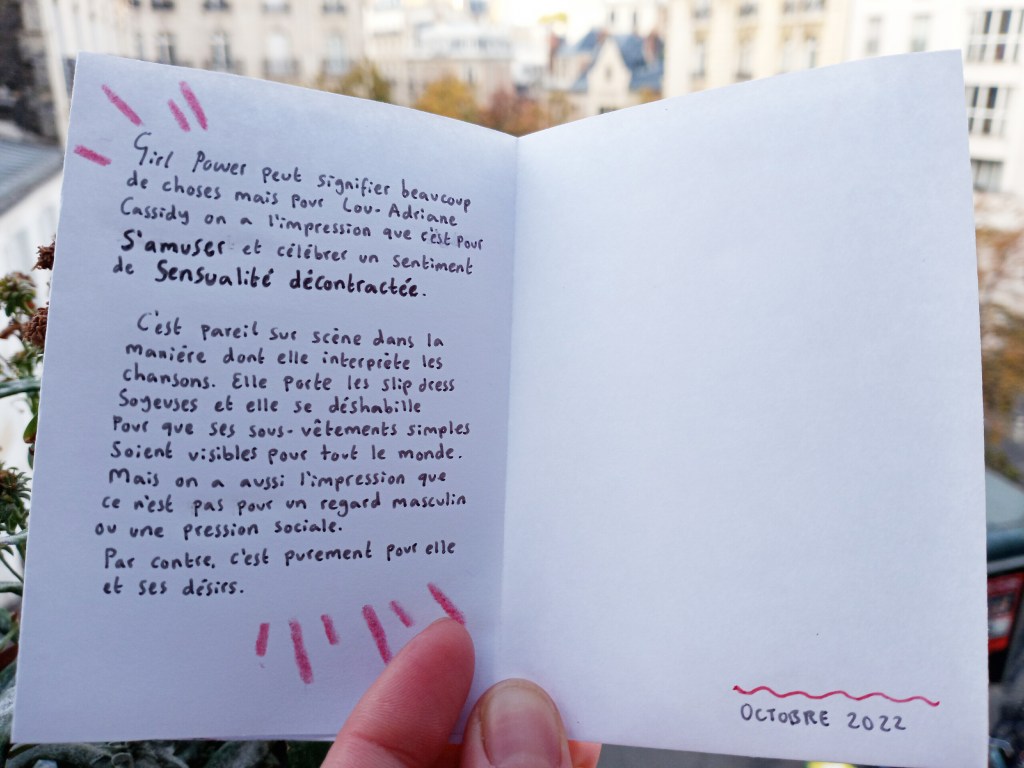 Girl Power peut signifier beaucoup
de choses mais pour Lou-Adriane
Cassidy on a l'impression que c'est pour
S'amuser et célébrer un sentiment
de Sensualité décontractée.
C'est pareil sur scène dans la
manière dont elle interprète les
chansons. Elle porte les slip dress
Soyeuses et elle se déshabille
Pour que ses sous-vêtements simples
Soient visibles pour tout le monde.
Mais on a aussi l'impression que
ce n'est pas pour un regard masculin
ou une pression sociale.
Par contre, c'est purement pour elle
et ses désirs.
OCTOBRE 2022